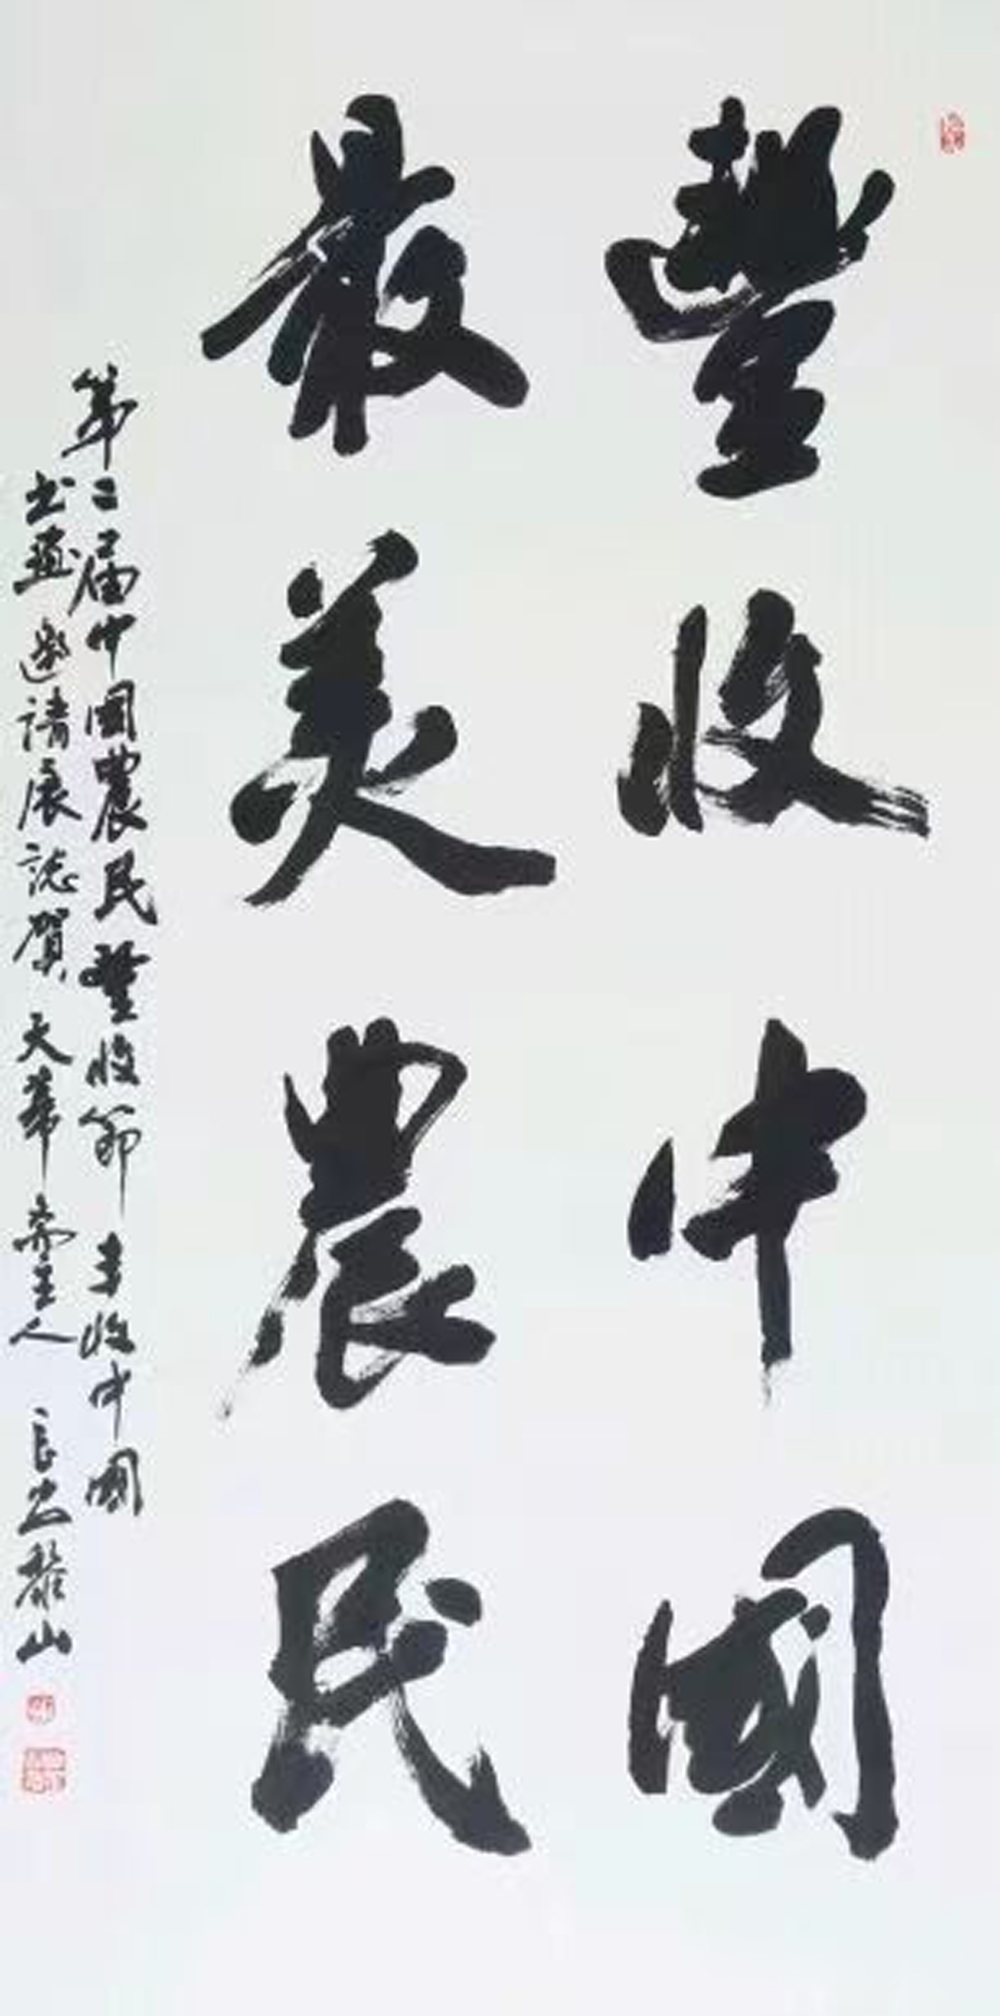 豐收中國
最美農民
第二届中國農民豐收節 收中國
書畫邀請展誌賀 天華齋主人 良忠 山